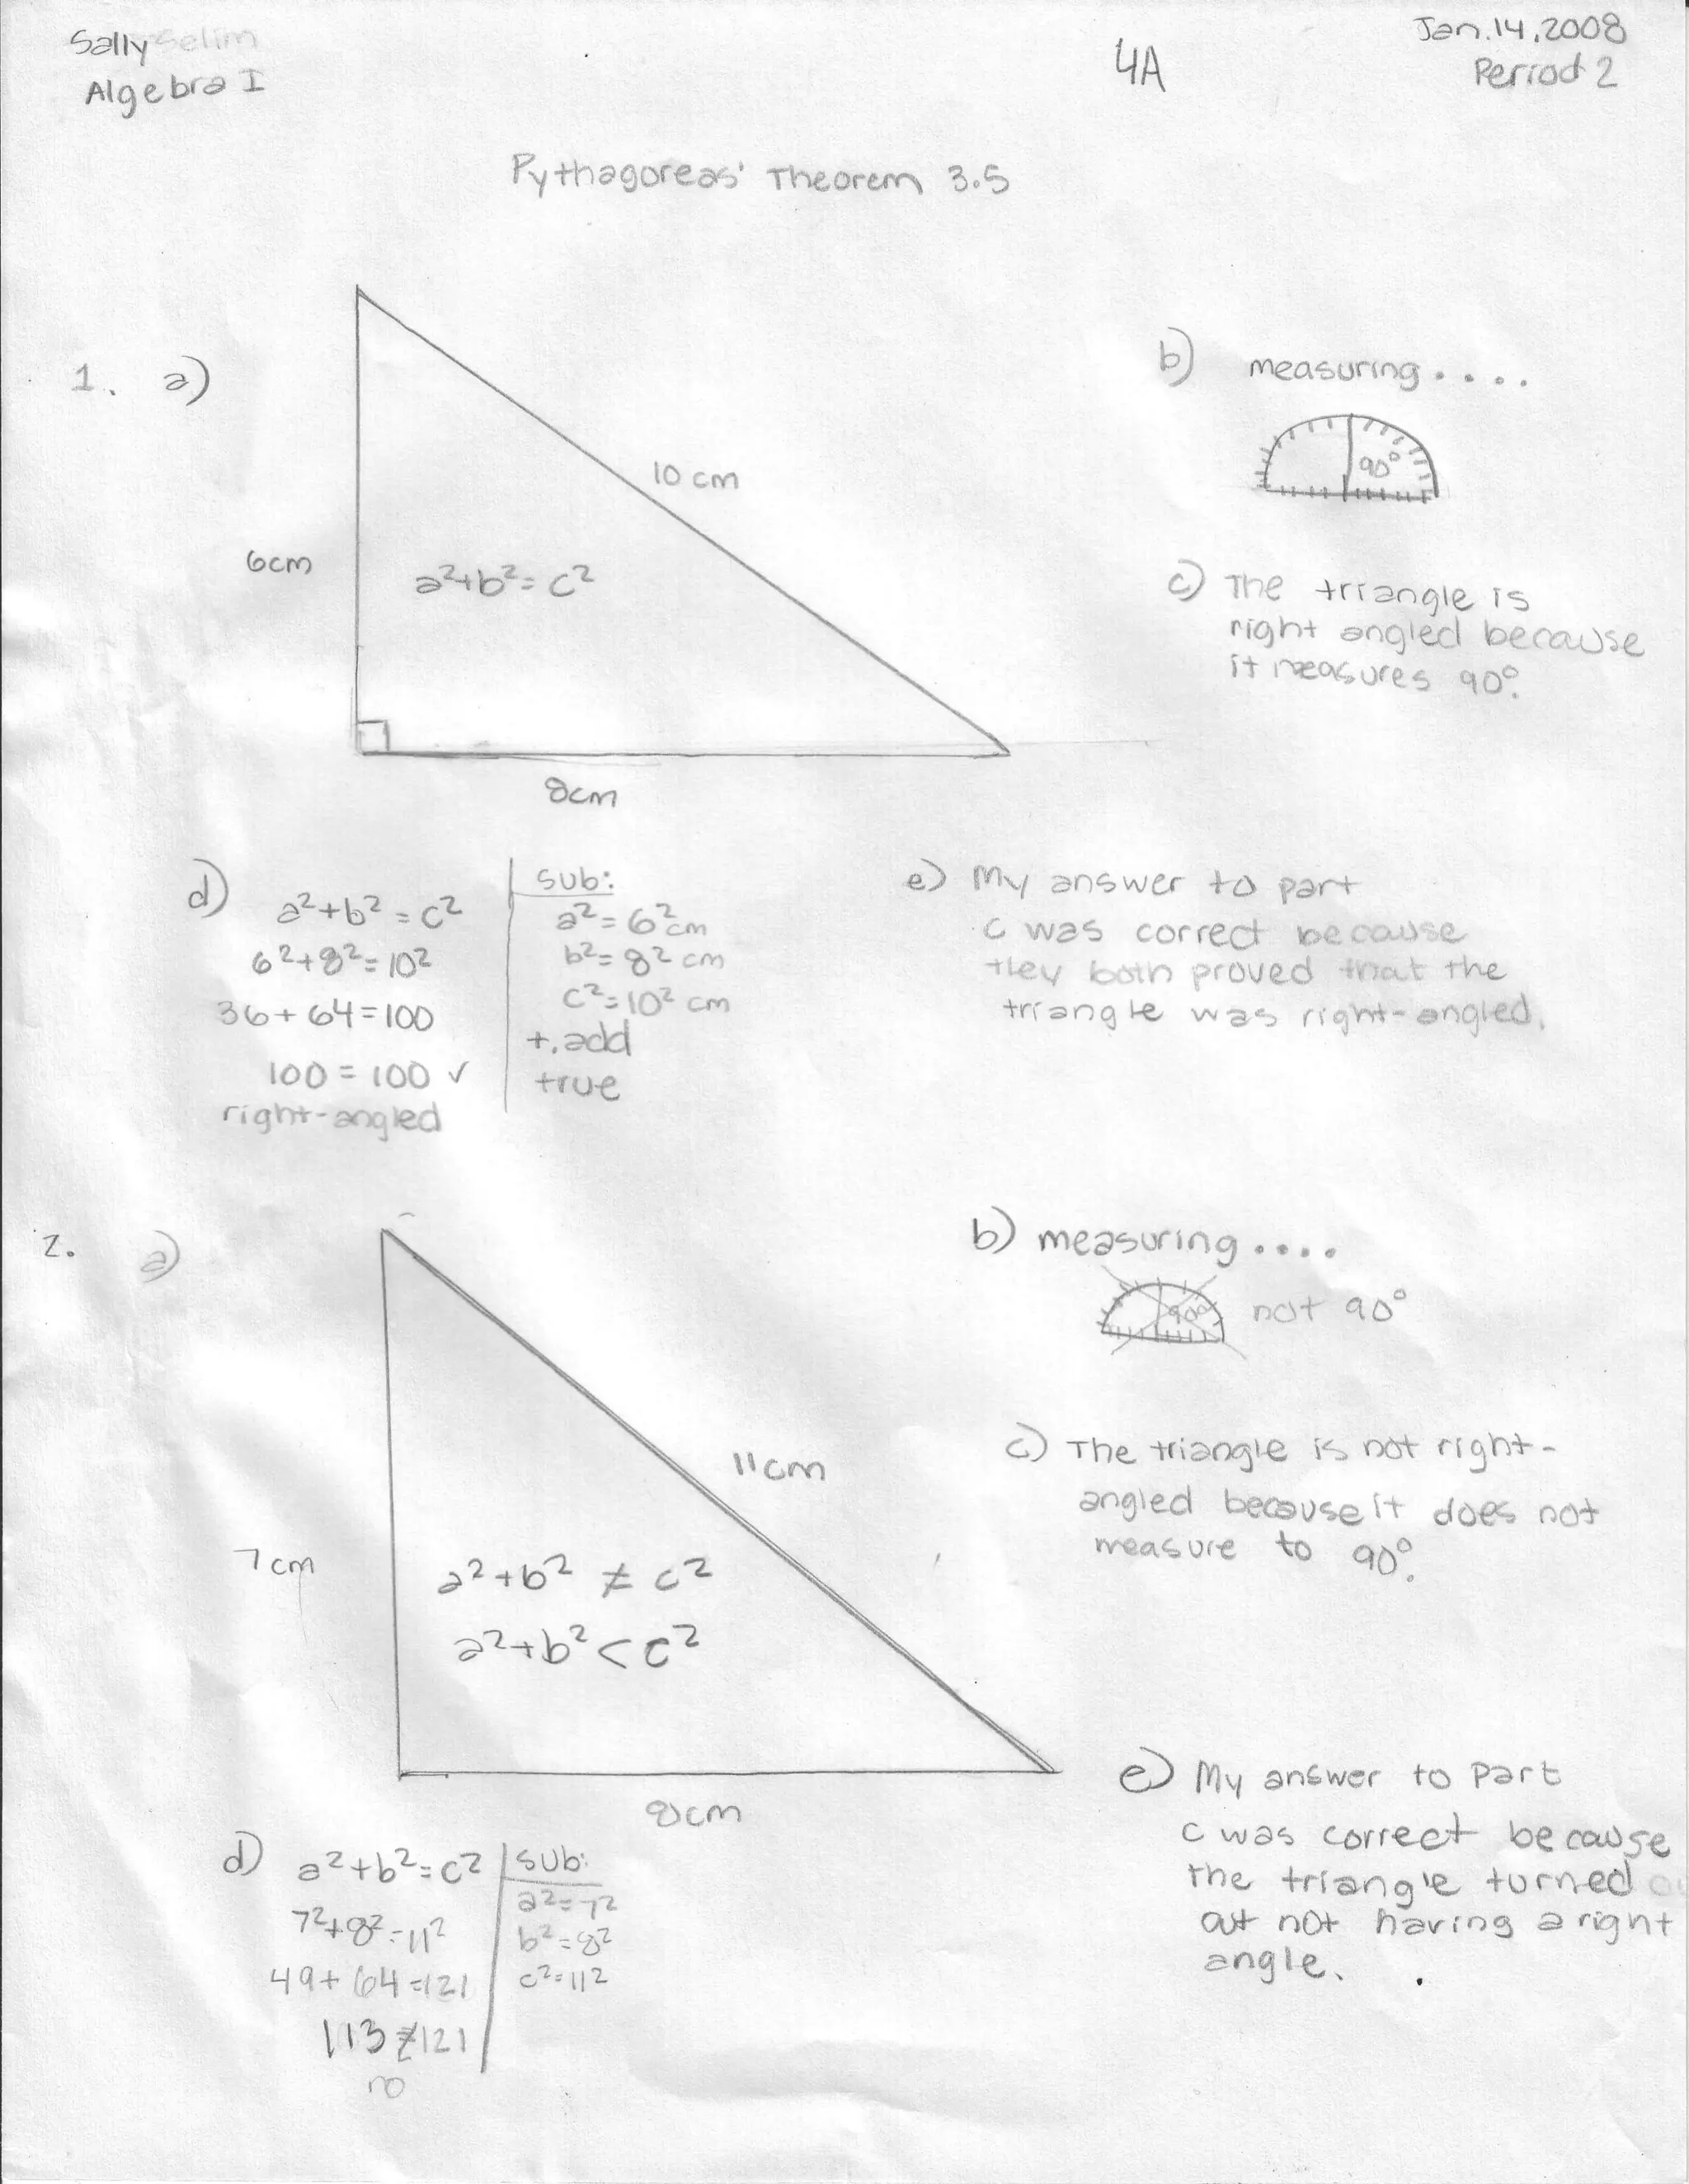 Sally Selim
Algebra I
4A
Jan. 14, 2008
Period 2
Pythagoreas' Theorem 3.5
1. a)
10 cm
6cm
a²+b²= c²
8cm
b) measuring . . . .
90°
c) The triangle is
right angled because
it measures 90°.
d) a²+b² = c²
6²+8²=10²
36+64=100
100 = 100 ✓
right-angled
sub:
a²=6²cm
b²=8² cm
c²=10² cm
+, add
true
e) My answer to part
c was correct because
they both proved that the
triangle was right-angled.
2. a)
11cm
7cm
a²+b² ≠ c²
a²+b² < c²
8cm
b) measuring . . . .
90°
not 90°
c) The triangle is not right-
angled because it does not
measure to 90°.
d) a²+b²=c²
7²+8²=11²
49+64=121
113≠121
no
sub:
a²=7²
b²=8²
c²=11²
e) My answer to part
c was correct because
the triangle turned ou
out not having a right
angle.